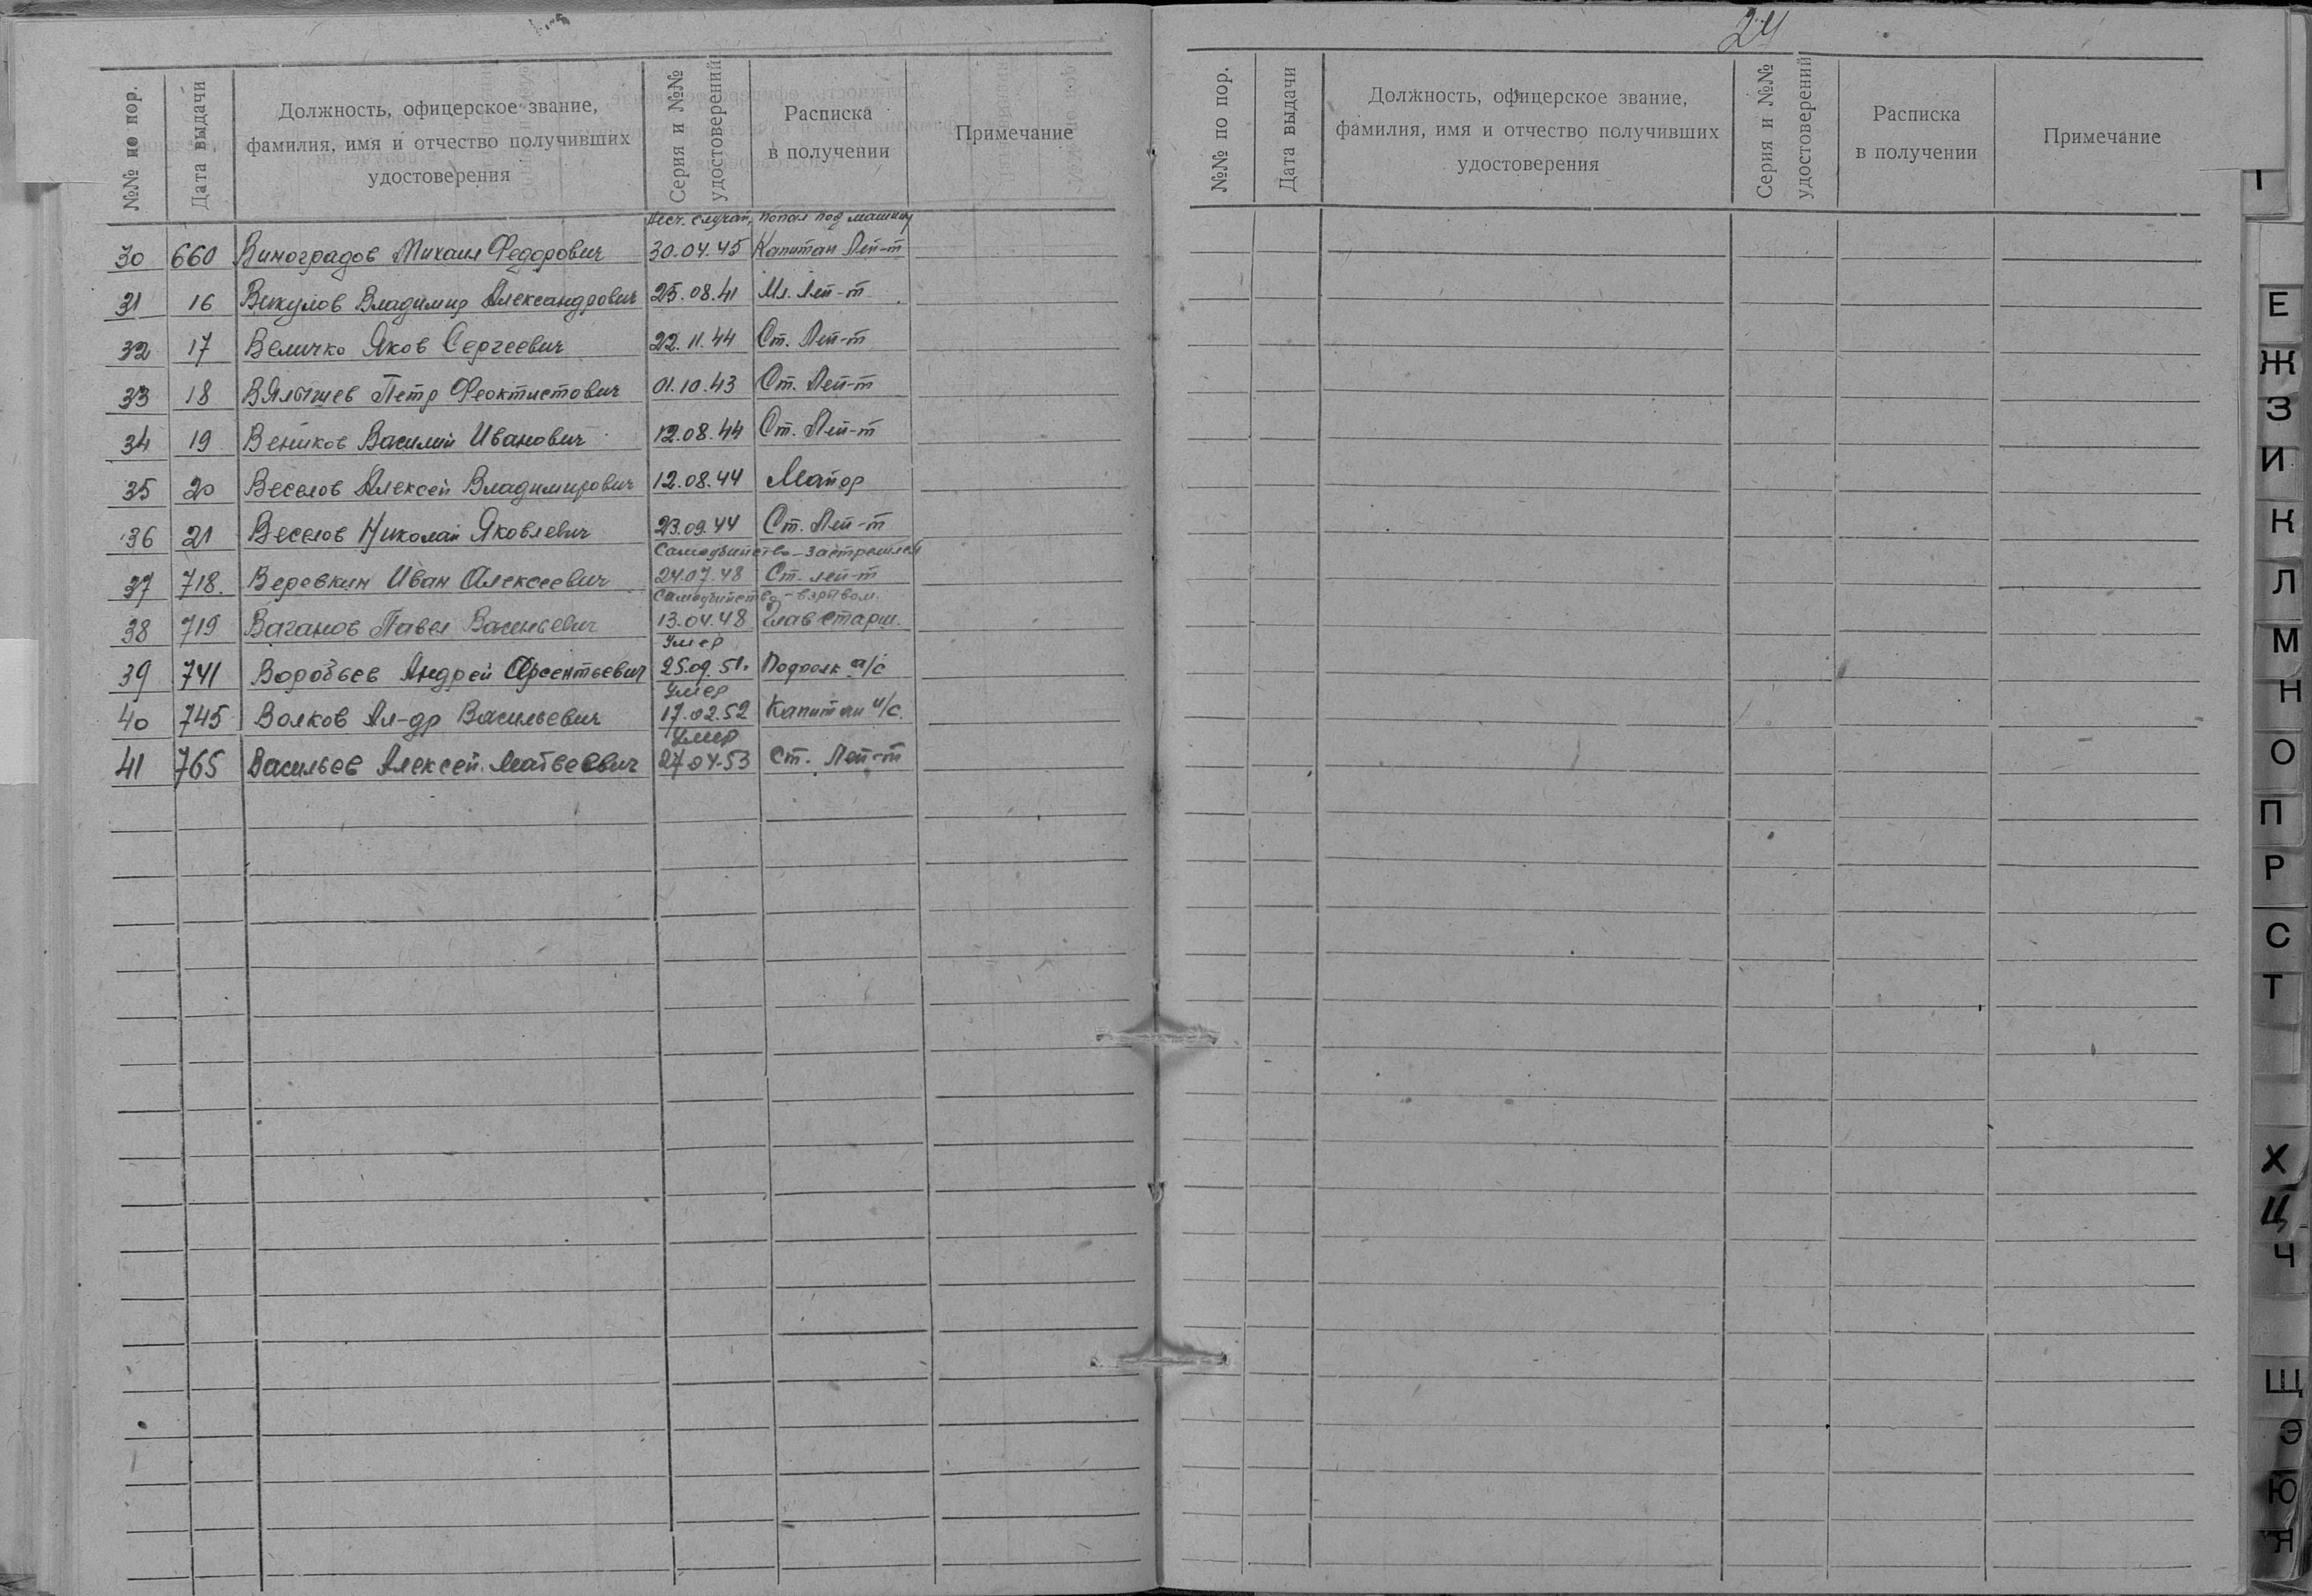 24
№№ по пор.
Дата выдачи
Должность, офицерское звание,
фамилия, имя и отчество получивших
удостоверения
Серия и №№
удостоверений
Расписка
в получении
Примечание
Несч. случай, попал под машину
30 660 Виноградов Михаил Федорович 30.04.45 Капитан Лей-т
31 16 Викулов Владимир Александрович 25.08.41 Мл. Лей-т
32 17 Величко Яков Сергеевич 22.11.44 Ст. Лей-т
33 18 Вялычев Петр Феоктистович 01.10.43 Ст. Лей-т
34 19 Веников Василий Иванович 12.08.44 Ст. Лей-т
35 20 Веселов Алексей Владимирович 12.08.44 Майор
36 21 Веселов Николай Яковлевич 23.09.44 Ст. Лей-т
Самоубийство - застрелился
37 718. Веревкин Иван Алексеевич 24.07.48 Ст. лей-т
Самоубийство - взрывом.
38 719 Ваганов Павел Васильевич 13.04.48 Глав старш.
Умер
39 741 Воробьев Андрей Арсентьевич 25.09.51. Подполк а/с
Умер
40 745 Волков Ал-др Васильевич 17.02.52 Капитан и/с.
Умер
41 765 Васильев Алексей Матвеевич 27.04.53 Ст. Лей-т
№№ по пор.
Дата выдачи
Должность, офицерское звание,
фамилия, имя и отчество получивших
удостоверения
Серия и №№
удостоверений
Расписка
в получении
Примечание
Е
Ж
З
И
К
Л
М
Н
О
П
Р
С
Т
Х
Ц
Ч
Щ
Э
Ю
Я